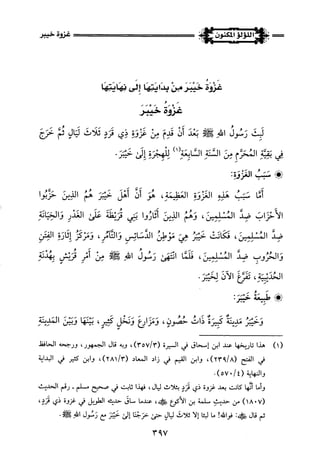 اللؤلؤ المكنون
غزوة خيبر
غَزْوَةُ خَيْبَرَ مِنْ بِدَايَتِهَا إِلَى نِهَايَتِهَا
غَزْوَةُ خَيْبَرَ
لَبِثَ رَسُولُ اللهِ ﷺ بَعْدَ أَنْ قَدِمَ مِنْ غَزْوَةِ ذِي قَرَدٍ ثَلَاثَ لَيَالٍ ثُمَّ خَرَجَ
فِي بَقِيَّةِ الْمُحَرَّمِ مِنَ السَّنَةِ السَّابِعَةِ(١) لِلْهِجْرَةِ إِلَى خَيْبَرَ.
* سَبَبُ الغَزْوَةِ:
أَمَّا سَبَبُ هَذِهِ الغَزْوَةِ العَظِيمَةِ، هُوَ أَنَّ أَهْلَ خَيْبَرَ هُمُ الذِينَ حَزَّبُوا
الأَحْزَابَ ضِدَّ المُسْلِمِينَ، وَهُمُ الذِينَ أَثَارُوا بَنِي قُرَيْظَةَ عَلَى الغَدْرِ وَالخِيَانَةِ
ضِدَّ المُسْلِمِينَ، فَكَانَتْ خَيْبَرُ هِيَ مَوْطِنُ الدَّسَائِسِ وَالتَّآمُرِ، وَمَرْكَزُ إِثَارَةِ الفِتَنِ
وَالحُرُوبِ ضِدَّ المُسْلِمِينَ، فَلَمَّا انْتَهَى رَسُولُ اللهِ ﷺ مِنْ أَمْرِ قُرَيْشٍ بِهُدْنَةِ
الحُدَيْبِيَةِ، تَفَرَّغَ الآنَ لِخَيْبَرَ.
* طَبِيعَةُ خَيْبَرَ:
وَخَيْبَرُ مَدِينَةٌ كَبِيرَةٌ ذَاتُ حُصُونٍ، وَمَزَارِعَ وَنَخْلٍ كَثِيرٍ، بَيْنَهَا وَبَيْنَ المَدِينَةِ
(١) هذا تاريخها عند ابن إسحاق في السيرة (٣/٣٥٧)، وبه قال الجمهور، ورجحه الحافظ
في الفتح (٨/٢٣٩)، وابن القيم في زاد المعاد (٣/٢٨١)، وابن كثير في البداية
والنهاية (٤/٥٧٠).
وأما أنَّها كانت بعد غزوة ذي قَرَدٍ بثلاث ليال، فهذا ثابت في صحيح مسلم، رقم الحديث
(١٨٠٧) من حديث سلمة بن الأكوع، عندما ساق حديثه الطويل في غزوة ذي قَرَدٍ،
ثم قال: فوالله! ما لبثنا إلا ثلاثَ ليالٍ حتى خرَجْنَا إلى خَيْبَرَ مع رَسُولِ اللهِ ﷺ.
٣٩٧